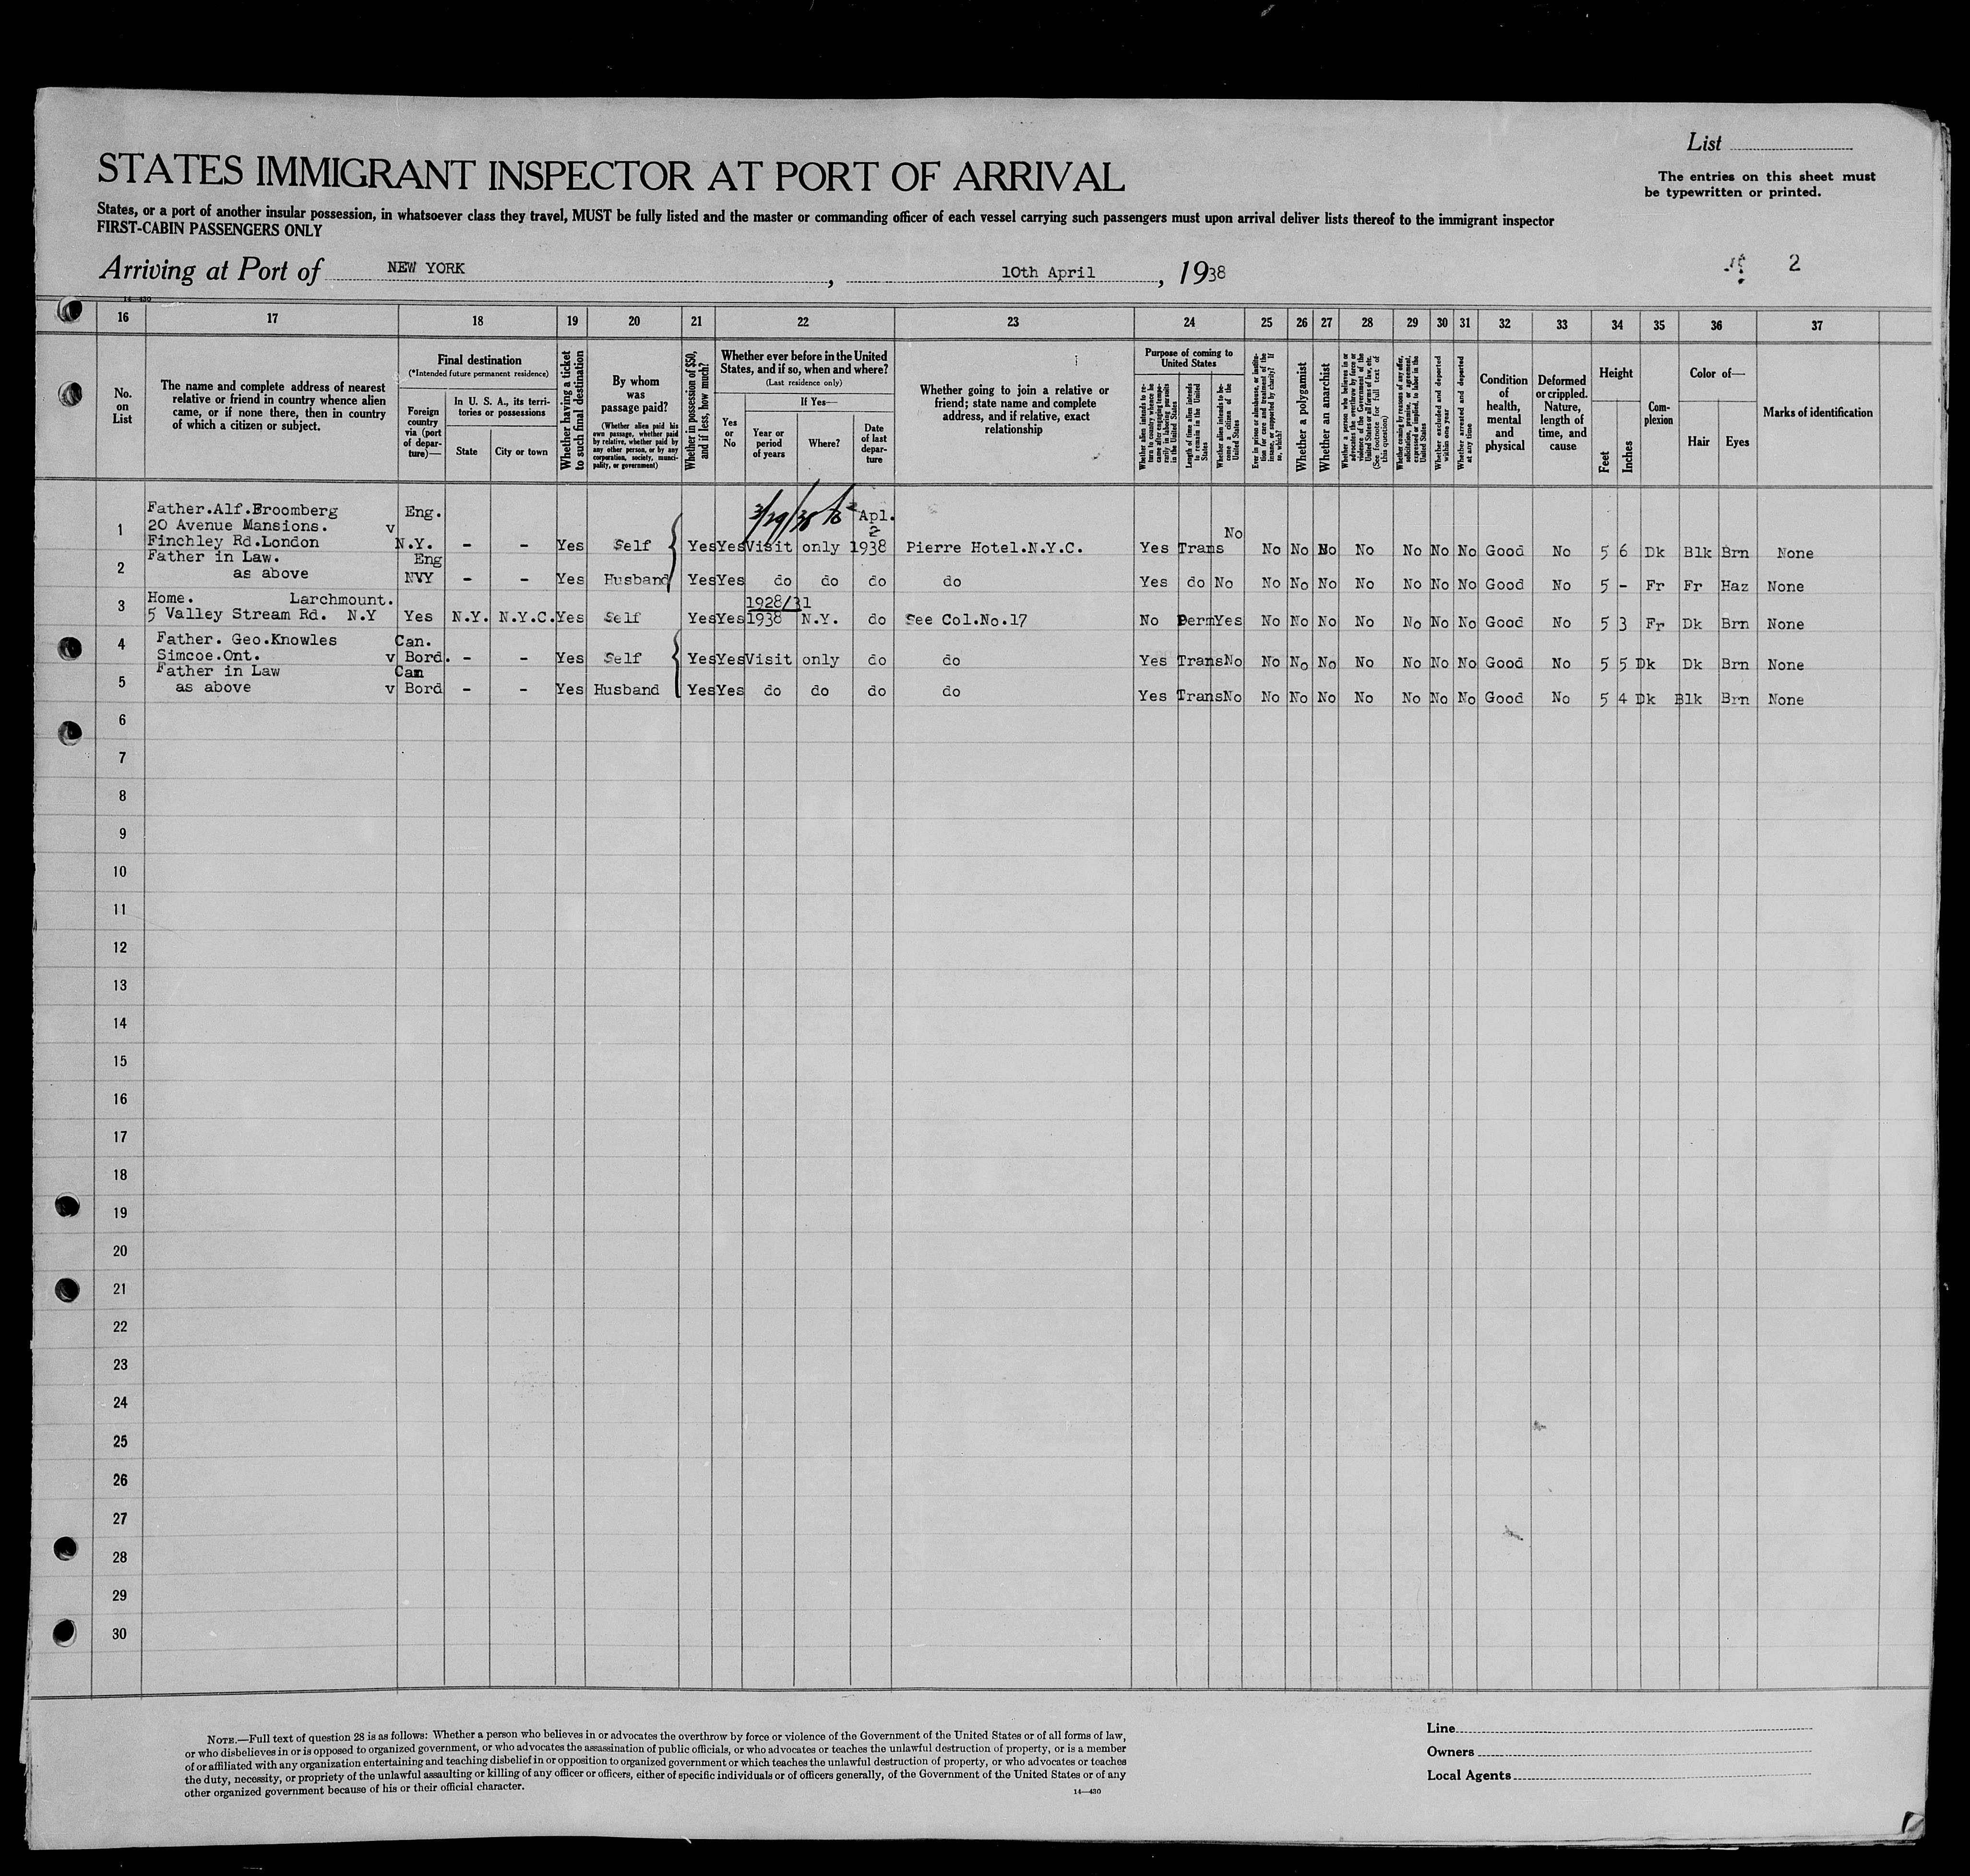 List
STATES IMMIGRANT INSPECTOR AT PORT OF ARRIVAL
The entries on this sheet must
be typewritten or printed.
States, or a port of another insular possession, in whatsoever class they travel, MUST be fully listed and the master or commanding officer of each vessel carrying such passengers must upon arrival deliver lists thereof to the immigrant inspector
FIRST-CABIN PASSENGERS ONLY
Arriving at Port of NEW YORK, 10th April, 1938
2
14—430
16 17 18 19 20 21 22 23 24 25 26 27 28 29 30 31 32 33 34 35 36 37
No.
on
List
The name and complete address of nearest
relative or friend in country whence alien
came, or if none there, then in country
of which a citizen or subject.
Final destination
(*Intended future permanent residence)
Foreign
country
via (port
of depar-
ture)—
In U. S. A., its terri-
tories or possessions
State
City or town
Whether having a ticket
to such final destination
By whom
was
passage paid?
(Whether alien paid his
own passage, whether paid
by relative, whether paid by
any other person, or by any
corporation, society, munici-
pality, or government)
Whether in possession of $50,
and if less, how much?
Whether ever before in the United
States, and if so, when and where?
(Last residence only)
Yes
or
No
If Yes—
Year or
period
of years
Where?
Date
of last
depar-
ture
Whether going to join a relative or
friend; state name and complete
address, and if relative, exact
relationship
Purpose of coming to
United States
Whether alien intends to re-
turn to country whence he
came after engaging tempo-
rarily in laboring pursuits
in the United States
Length of time alien intends
to remain in the United
States
Whether alien intends to be-
come a citizen of the
United States
Ever in prison or almshouse, or institu-
tion for care and treatment of the
insane, or supported by charity? If
so, which?
Whether a polygamist
Whether an anarchist
Whether a person who believes in or
advocates the overthrow by force or
violence of the Government of the
United States or all forms of law, etc.
(See footnote for full text of
this question)
Whether coming by reason of any offer,
solicitation, promise, or agreement,
expressed or implied, to labor in the
United States
Whether excluded and deported
within one year
Whether arrested and deported
at any time
Condition
of
health,
mental
and
physical
Deformed
or crippled.
Nature,
length of
time, and
cause
Height
Feet
Inches
Com-
plexion
Color of—
Hair
Eyes
Marks of identification
3/29/38
Father.Alf.Broomberg Eng. Apl.
1 20 Avenue Mansions. v 2 No
Finchley Rd.London N.Y. - - Yes Self Yes Yes Visit only 1938 Pierre Hotel.N.Y.C. Yes Trans No No No No No No No Good No 5 6 Dk Blk Brn None
Father in Law. Eng
2 as above NVY - - Yes Husband Yes Yes do do do do Yes do No No No No No No No No Good No 5 - Fr Fr Haz None
3 Home. Larchmount. 1928/31
5 Valley Stream Rd. N.Y Yes N.Y. N.Y.C. Yes Self Yes Yes 1938 N.Y. do See Col.No.17 No Perm Yes No No No No No No No Good No 5 3 Fr Dk Brn None
4 Father. Geo.Knowles Can.
Simcoe.Ont. v Bord. - - Yes Self Yes Yes Visit only do do Yes Trans No No No No No No No No Good No 5 5 Dk Dk Brn None
Father in Law Can
5 as above v Bord - - Yes Husband Yes Yes do do do do Yes Trans No No No No No No No No Good No 5 4 Dk Blk Brn None
6
7
8
9
10
11
12
13
14
15
16
17
18
19
20
21
22
23
24
25
26
27
28
29
30
NOTE.—Full text of question 28 is as follows: Whether a person who believes in or advocates the overthrow by force or violence of the Government of the United States or of all forms of law,
or who disbelieves in or is opposed to organized government, or who advocates the assassination of public officials, or who advocates or teaches the unlawful destruction of property, or is a member
of or affiliated with any organization entertaining and teaching disbelief in or opposition to organized government or which teaches the unlawful destruction of property, or who advocates or teaches
the duty, necessity, or propriety of the unlawful assaulting or killing of any officer or officers, either of specific individuals or of officers generally, of the Government of the United States or of any
other organized government because of his or their official character.
14—430
Line
Owners
Local Agents